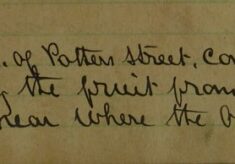 . of Potters Street, Co
the fruit prom
near where the